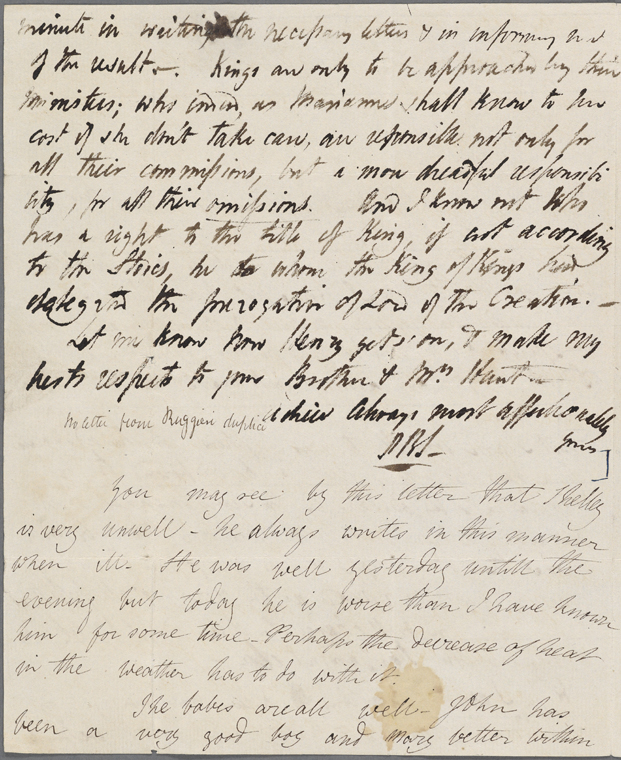 minute in writing the necessary letters & in informing me
of the result –. Kings are only to be approached by their
ministers; who indeed, as Marianne shall know to her
cost if she don't take care, are responsible not only for
all their commissions, but a more dreadful responsibi
lity, for all their omissions. And I know not who
has a right to the title of King, if not according
to the Stoics, he to whom the King of Kings had
delegated the prerogative of Lord of the Creation. –
Let me know how Henry gets on, & make my
best respects to your Brother & Mrs Hunt –
adieu Always most affectionately
no letter from Ruggieri
yours
PBS –
You may see by this letter that Shelley
is very unwell – he always writes in this manner
when ill – He was well yesterday untill the
evening but today he is worse than I have known
him for some time – Perhaps the decrease of heat
in the weather has to do with it.
The babes are all well – John has
been a very good boy and Mary better within